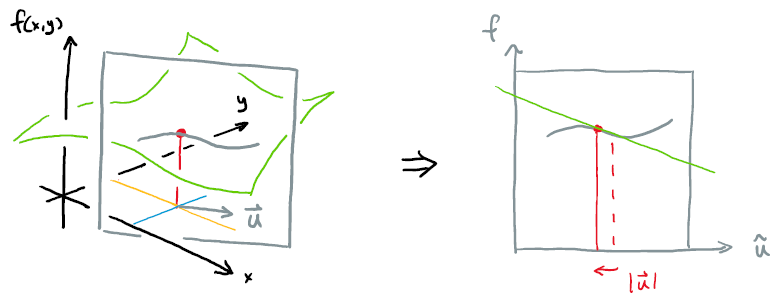 f(x,y)
y
u⃗
x
⇒
f
ũ
|u⃗|